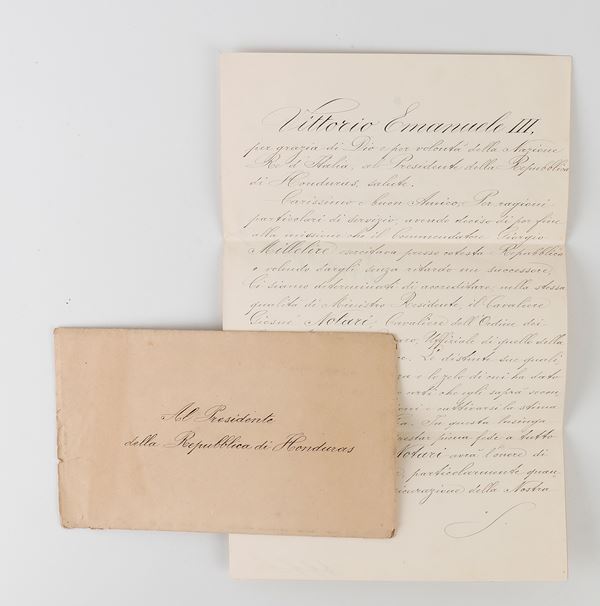 Vittorio Emanuele III,
per grazia di Dio e per volontà della Nazione
Re d'Italia, al Presidente della Repubblica
di Honduras, salute.
Carissimo e buon Amico, Per ragioni
particolari di servizio, avendo deciso di por fine
alla missione che il Commendatore Giorgio
Millelire esercitava presso cotesta Repubblica
e volendo dargli senza ritardo un successore,
Ci siamo determinati di accreditare, nella stessa
qualità di Ministro Residente, il Cavaliere
Notari, Cavaliere dell'Ordine dei
Uffiziale di quello della
Le distinte sue quali
e lo zelo di cui ha dato
certi che egli saprà
e cattivarsi la stima
In questa lusinga
prestar piena fede a tutto
Notari avrà l'onore di
particolarmente quan
della Nostra
Al Presidente
della Repubblica di Honduras